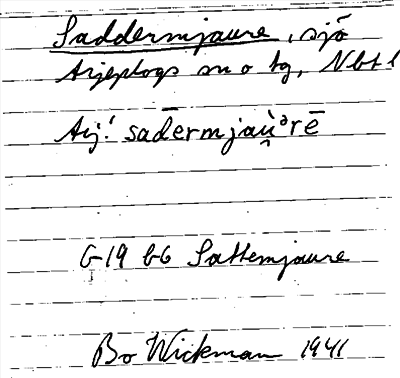 Saddermjaure, sjö
Arjeplogs sn o tg, Nbt l
Arj! sad̄ermjaù̯ᵊrē
G-19 b6 Sattemjaure
Bo Wickman 1941